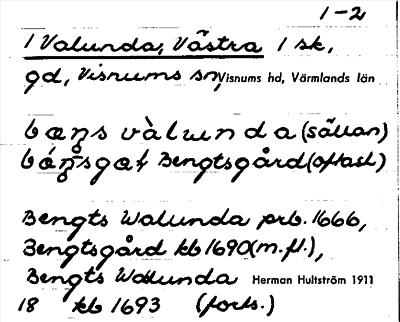 1-2
1 Valunda, Västra 1 sk,
gd, Visnums sn, Visnums hd, Värmlands län
bæŋs vàlunda (sällan)
báŋsgaɫ Bengtsgård (oftast)
Bengts Walunda prb. 1666,
Bengtsgård kb 1690 (m.fl.),
Bengts Walunda Herman Hultström 1911
18 kb 1693 (forts.)